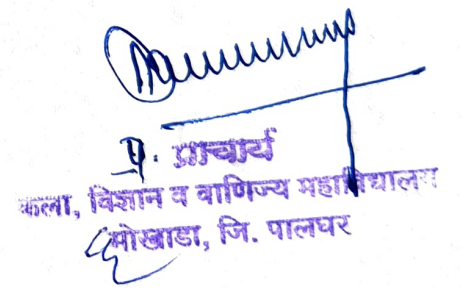 प्र. प्राचार्य
कला, विज्ञान व वाणिज्य महाविद्यालय
मोखाडा, जि. पालघर